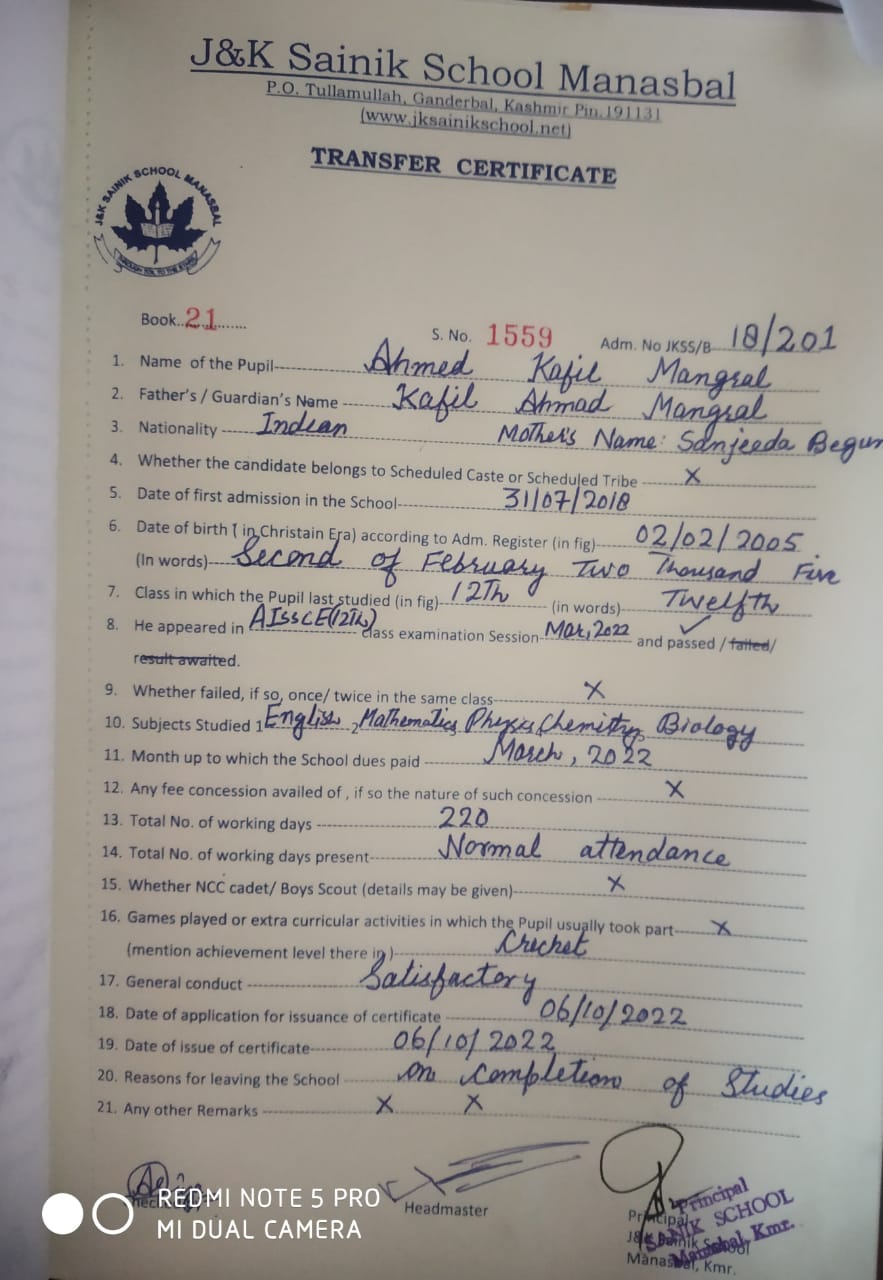 J&K Sainik School Manasbal
P.O. Tullamullah, Ganderbal, Kashmir Pin.191131
(www.jksainikschool.net)
TRANSFER CERTIFICATE
J&K SAINIK SCHOOL MANASBAL
Book..21.......
S. No. 1559 Adm. No JKSS/B 18/201
1. Name of the Pupil Ahmed Kafil Mangral
2. Father's / Guardian's Name Kafil Ahmad Mangral
3. Nationality Indian Mother's Name: Sanjeeda Begum
4. Whether the candidate belongs to Scheduled Caste or Scheduled Tribe X
5. Date of first admission in the School 31/07/2018
6. Date of birth ( in Christain Era) according to Adm. Register (in fig) 02/02/2005
(In words) Second of February Two Thousand Five
7. Class in which the Pupil last studied (in fig) 12Th (in words) Twelfth
8. He appeared in AISSCE(12Th) class examination Session Mar, 2022 and passed / failed/
result awaited.
9. Whether failed, if so, once/ twice in the same class X
10. Subjects Studied 1 English 2 Mathematics Physics Chemistry Biology
11. Month up to which the School dues paid March, 2022
12. Any fee concession availed of , if so the nature of such concession X
13. Total No. of working days 220
14. Total No. of working days present Normal attendance
15. Whether NCC cadet/ Boys Scout (details may be given) X
16. Games played or extra curricular activities in which the Pupil usually took part X
(mention achievement level there in ) Cricket
17. General conduct Satisfactory
18. Date of application for issuance of certificate 06/10/2022
19. Date of issue of certificate 06/10/2022
20. Reasons for leaving the School on completion of Studies
21. Any other Remarks X X
Headmaster
Principal
J&K Sainik School
Manasbal, Kmr.
Principal
SAINIK SCHOOL
Manasbal, Kmr.
REDMI NOTE 5 PRO
MI DUAL CAMERA